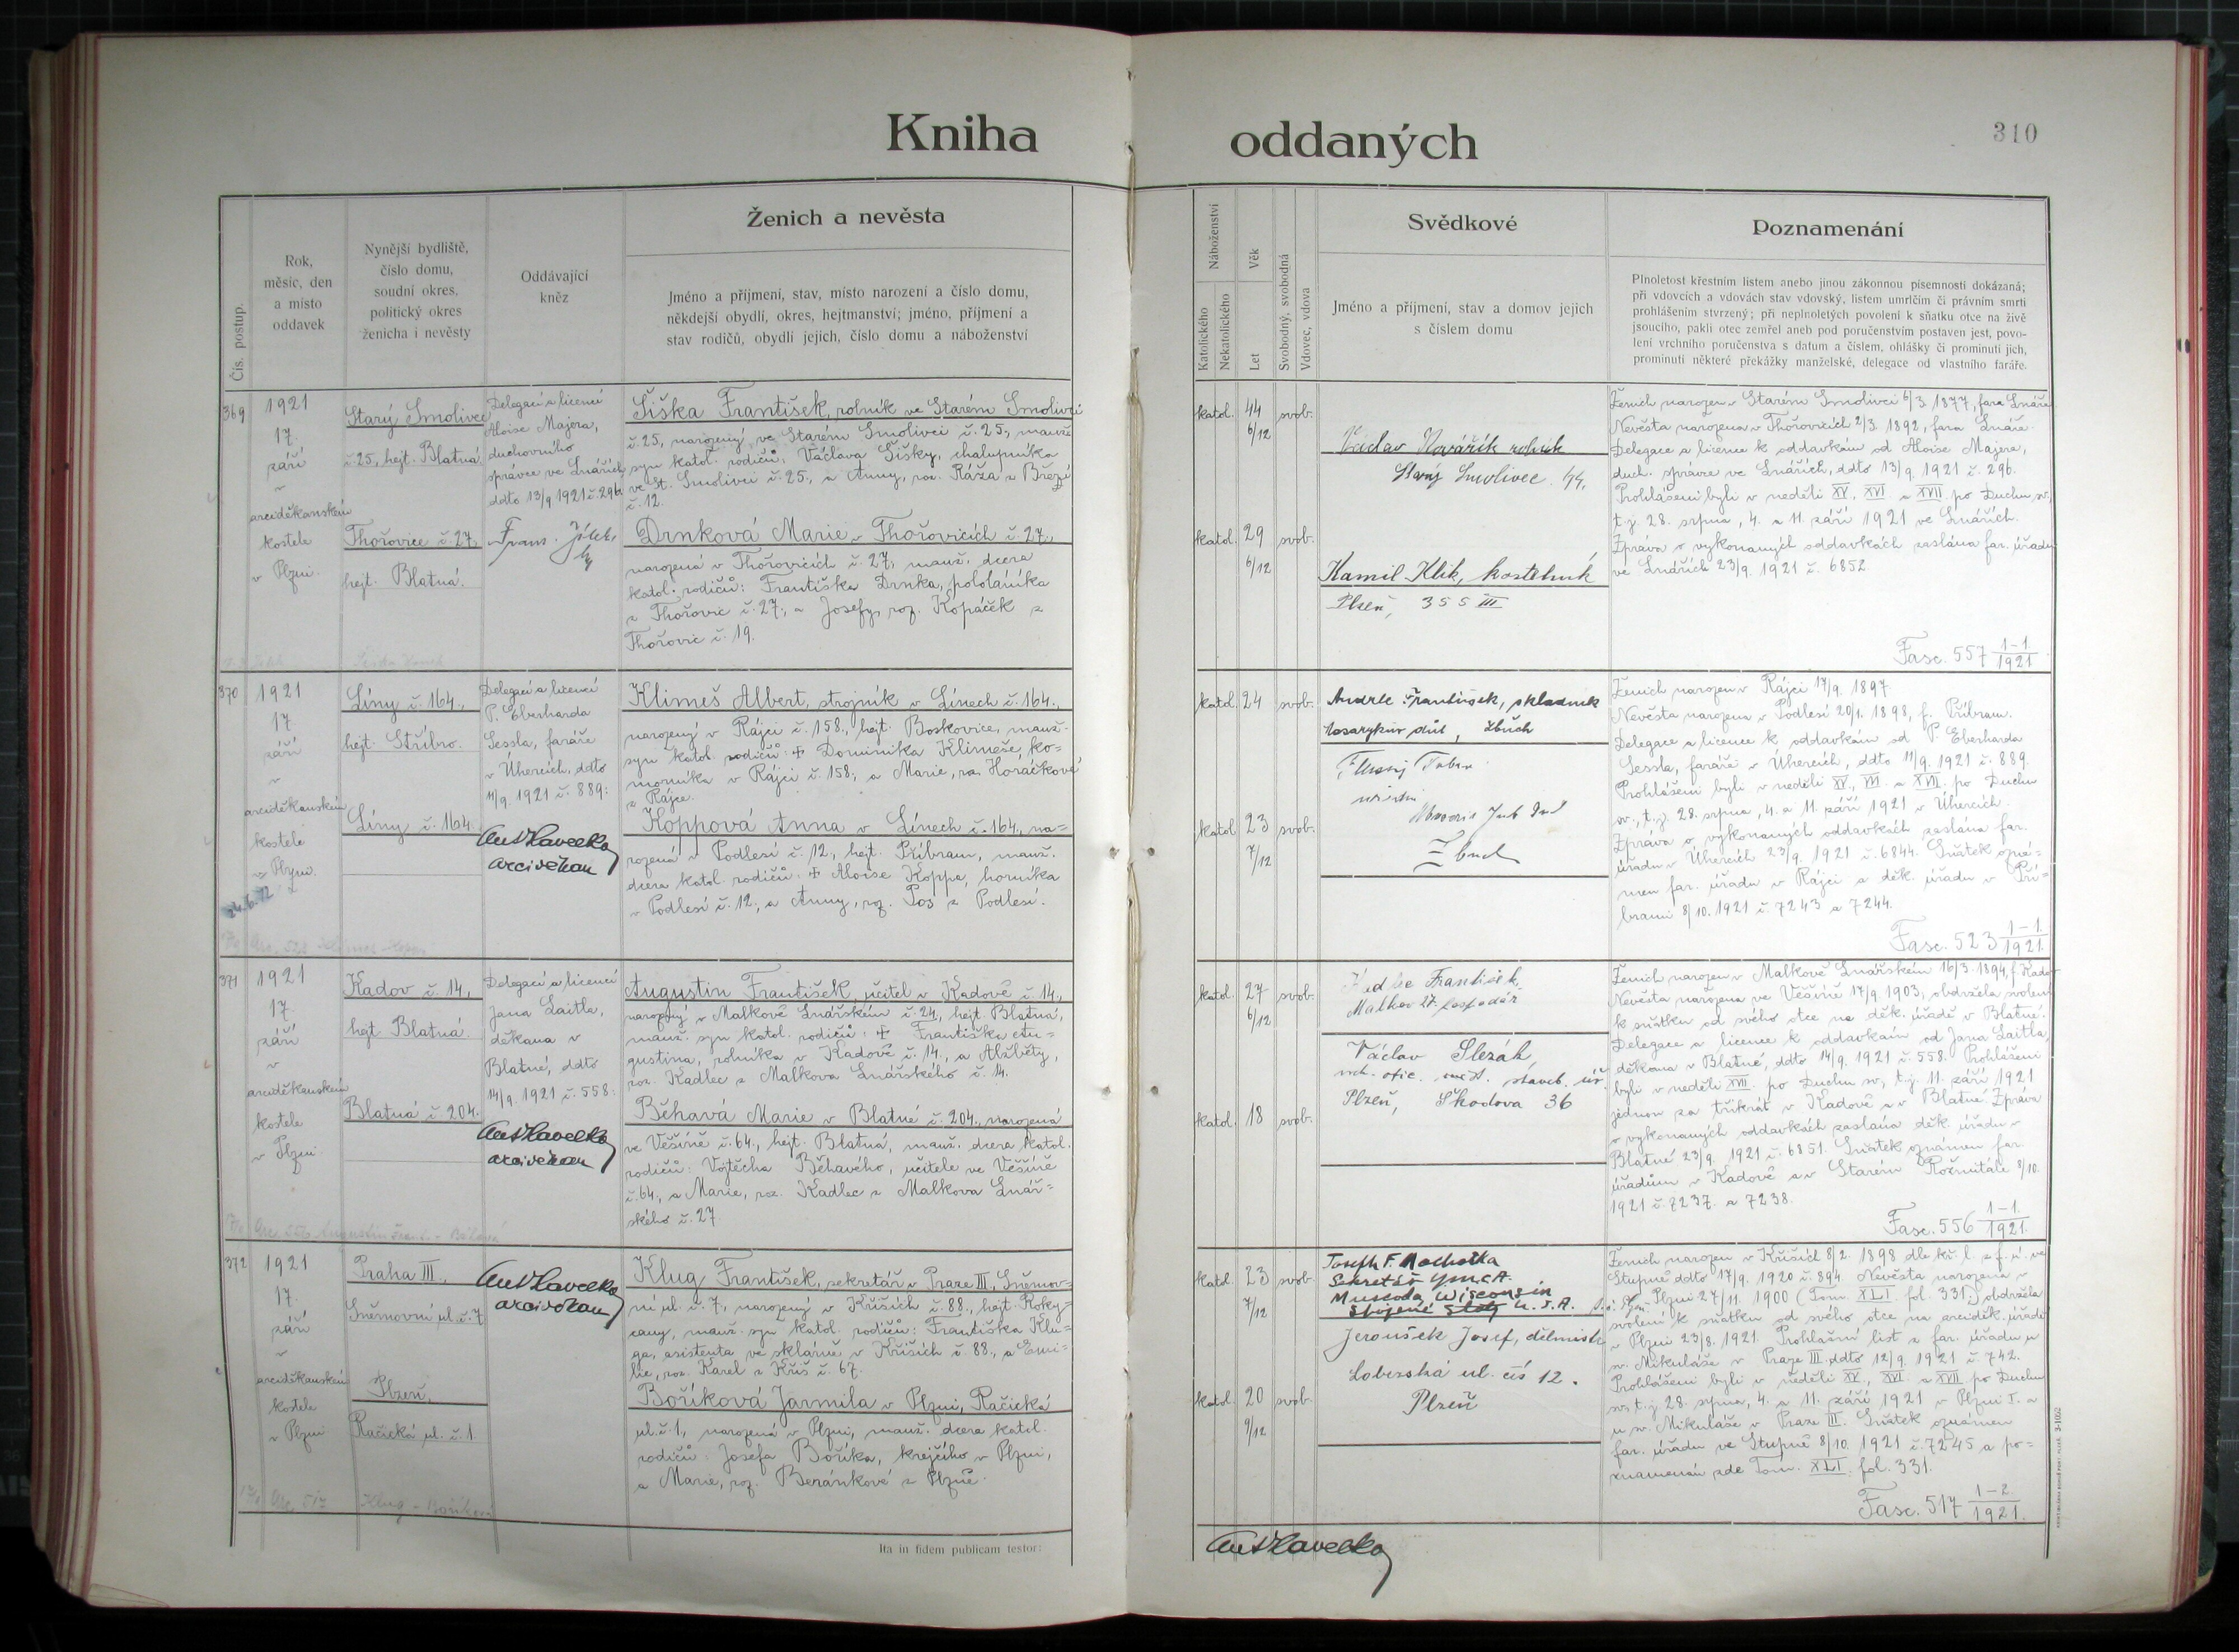 Kniha
oddaných
310
Čís. postup.
Rok,
měsíc, den
a místo
oddavek
Nynější bydliště,
číslo domu,
soudní okres,
politický okres
ženicha i nevěsty
Oddávající
kněz
Ženich a nevěsta
Jméno a příjmení, stav, místo narození a číslo domu,
někdejší obydlí, okres, hejtmanství; jméno, příjmení a
stav rodičů, obydlí jejich, číslo domu a náboženství
Náboženství
Katolického
Nekatolického
Věk
Let
Svobodný, svobodná
Vdovec, vdova
Svědkové
Jméno a příjmení, stav a domov jejich
s číslem domu
Poznamenání
Plnoletost křestním listem anebo jinou zákonnou písemností dokázaná;
při vdovcích a vdovách stav vdovský, listem umrlčím či právním smrti
prohlášením stvrzený; při neplnoletých povolení k sňatku otce na živě
jsoucího, pakli otec zemřel aneb pod poručenstvím postaven jest, povo-
lení vrchního poručenstva s datum a číslem, ohlášky či prominutí jich,
prominutí některé překážky manželské, delegace od vlastního faráře.
369
1921
17.
září
v
arciděkanském
kostele
v Plzni.
Starý Smolivec
č. 25, hejt. Blatná.
Thořovice č. 27,
hejt. Blatná.
Delegací a licencí
Aloise Majera,
duchovního
správce ve Lnářích
ddto 13/9 1921 č. 296
Šiška František, rolník ve Starém Smolivci
č. 25, narozený ve Starém Smolivci č. 25., manž.
syn katol. rodičů: Václava Šišky, chalupníka
ve St. Smolivci č. 25., a Anny, roz. Ráža z Březí
č. 12.
Drnková Marie v Thořovicích č. 27.,
narozená v Thořovicích č. 27, manž. dcera
katol. rodičů: Františka Drnka, pololáníka
z Thořovic č. 27., a Josefy, roz. Kopáček z
Thořovic č. 19.
katol. 44 6/12 svob.
katol. 29 6/12 svob.
Václav Kovářík rolník
Starý Smolivec 74.
Kamil Klik, kostelník
Plzeň, 355 III
Ženich narozen v Starém Smolivci 6/3 1877, fara Lnáře
Nevěsta narozena v Thořovicích 2/3. 1892, fara Lnáře.
Delegace a licence k oddavkám od Aloise Majera,
duch. správce ve Lnářích, ddto 13/9 1921 č. 296.
Prohlášeni byli v neděli XV., XVI. a XVII. po Duchu sv.,
t.j. 28. srpna, 4. a 11. září 1921 ve Lnářích.
Zpráva o vykonaných oddavkách zaslána far. úřadu
ve Lnářích 23/9. 1921 č. 6852.
Fasc. 557 1-1/1921
370
1921
17.
září
v
arciděkanském
kostele
v Plzni.
Líny č. 164.,
hejt. Stříbro.
Líny č. 164.
Delegací a licencí
P. Eberharda
Sessla, faráře
v Úhercích, ddto
11/9. 1921 č. 889:
Ant Havelka
arciděkan
Klimeš Albert, strojník v Línech č. 164.,
narozený v Rájci č. 158., hejt. Boskovice, manž.
syn katol. rodičů: + Dominika Klimeše, ko-
morníka v Rájci č. 158, a Marie, roz. Horáčkové
z Rájce.
Koppová Anna v Línech č. 164., na-
rozená v Podlesí č. 12, hejt. Příbram, manž.
dcera katol. rodičů: + Aloise Koppa, horníka
v Podlesí č. 12., a Anny, roz. Pos z Podlesí.
katol. 24 svob.
katol. 23 7/12 svob.
Andrle František, skladník
Masarykův důl, Zbůch
Zbuch
Ženich narozen v Rájci 17/9. 1897.
Nevěsta narozena v Podlesí 20/1. 1898, f. Příbram.
Delegace a licence k oddavkám od P. Eberharda
Sessla, faráře v Úhercích, ddto 11/9. 1921 č. 889.
Prohlášeni byli v neděli XV., XVI. a XVII. po Duchu
sv., t.j. 28. srpna, 4. a 11. září 1921 v Úhercích.
Zpráva o vykonaných oddavkách zaslána far.
úřadu v Úhercích 23/9. 1921 č. 6844. Sňatek ozná-
men far. úřadu v Rájci a děk. úřadu v Pří-
brami 8/10. 1921 č. 7243 a 7244.
Fasc. 523 1-1./1921.
371
1921
17.
září
v
arciděkanském
kostele
v Plzni.
Kadov č. 14,
hejt. Blatná.
Blatná č. 204.
Delegací a licencí
Jana Laitla,
děkana v
Blatné, ddto
14/9. 1921 č. 558:
Ant Havelka
arciděkan
Augustin František, učitel v Kadově č. 14.,
narozený v Malkově Lnářském č. 24, hejt. Blatná,
manž. syn katol. rodičů: + Františka Au-
gustina, rolníka v Kadově č. 14., a Alžběty,
roz. Kadlec z Malkova Lnářského č. 14.
Běhavá Marie v Blatné č. 204., narozená
ve Věšíně č. 64., hejt. Blatná, manž. dcera katol.
rodičů: Vojtěcha Běhavého, učitele ve Věšíně
č. 64., a Marie, roz. Kadlec z Malkova Lnář-
ského č. 27.
katol. 27 6/12 svob.
katol. 18 svob.
František,
Malkov 27.
Václav Slezák,
vrch. ofic. měst. staveb. úř.
Plzeň, Škodova 36
Ženich narozen v Malkově Lnářském 16/3. 1894, f. Kadov
Nevěsta narozena ve Věšíně 17/9 1903, obdržela svolení
k sňatku od svého otce na děk. úřadě v Blatné.
Delegace a licence k oddavkám od Jana Laitla,
děkana v Blatné, ddto 14/9. 1921 č. 558. Prohlášeni
byli v neděli XVII. po Duchu sv., t.j. 11. září 1921
jednou za třikrát v Kadově a v Blatné. Zpráva
o vykonaných oddavkách zaslána děk. úřadu v
Blatné 23/9. 1921 č. 6851. Sňatek oznámen far.
úřadům v Kadově a v Starém Rožmitále 8/10.
1921 č. 7237. a 7238.
Fasc. 556 1-1./1921.
372
1921
17.
září
v
arciděkanském
kostele
v Plzni
Praha III.,
Sněmovní ul. č. 7
Plzeň,
Račická ul. č. 1.
Ant Havelka
arciděkan
Klug František, sekretář v Praze III, Sněmov-
ní ul. č. 7, narozený v Křiších č. 88., hejt. Roky-
cany, manž. syn katol. rodičů: Františka Klu-
ga, asistenta ve sklárně v Křiších č. 88., a Emi-
lie, roz. Karel z Kříš č. 67.
Boříková Jarmila v Plzni, Račická
ul. č. 1, narozená v Plzni, manž. dcera katol.
rodičů: Josefa Boříka, krejčího v Plzni,
a Marie, roz. Beránkové z Plzně.
katol. 23 7/12 svob.
katol. 20 9/12 svob.
Joseph F. Machotka
Sekretář Y.M.C.A.
Muscoda, Wisconsin
Spojené Státy U.S.A.
Jeroušek Josef, dílmistr
Lobezská ul. čís 12.
Plzeň
Ženich narozen v Křiších 8/2. 1898 dle kř. l. z f. ú. ve
Stupně ddto 17/9. 1920 č. 894. Nevěsta narozena v
Plzni 27/11. 1900 (Tom. XLI. fol. 331.) obdržela
svolení k sňatku od svého otce na arciděk. úřadě
v Plzni 23/8. 1921. Prohlašní list z far. úřadu u
sv. Mikuláše v Praze III. ddto 12/9. 1921 č. 742.
Prohlášeni byli v neděli XV., XVI. a XVII po Duchu
sv. t.j. 28. srpna, 4. a 11. září 1921 v Plzni I. a
u sv. Mikuláše v Praze III. Sňatek oznámen
far. úřadu ve Stupně 8/10. 1921 č. 7245 a po-
znamenán zde Tom. XLI. fol. 331.
Fasc. 517 1-2./1921.
Ita in fidem publicam testor:
Ant Havelka